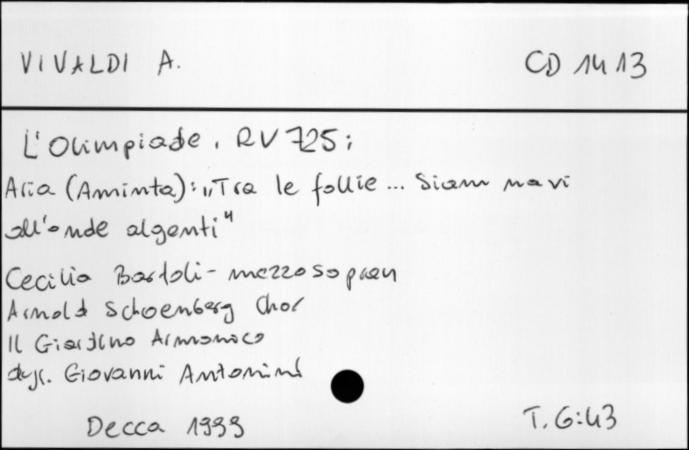 VIVALDI A. CD 1413
L'Olimpiade, RV 725;
Aria (Aminta): „Tra le follie... Siam navi
all'onde algenti"
Cecilia Bartoli - mezzosopran
Arnold Schoenberg Chor
Il Giardino Armonico
dyr. Giovanni Antonini
Decca 1999 T. 6:43